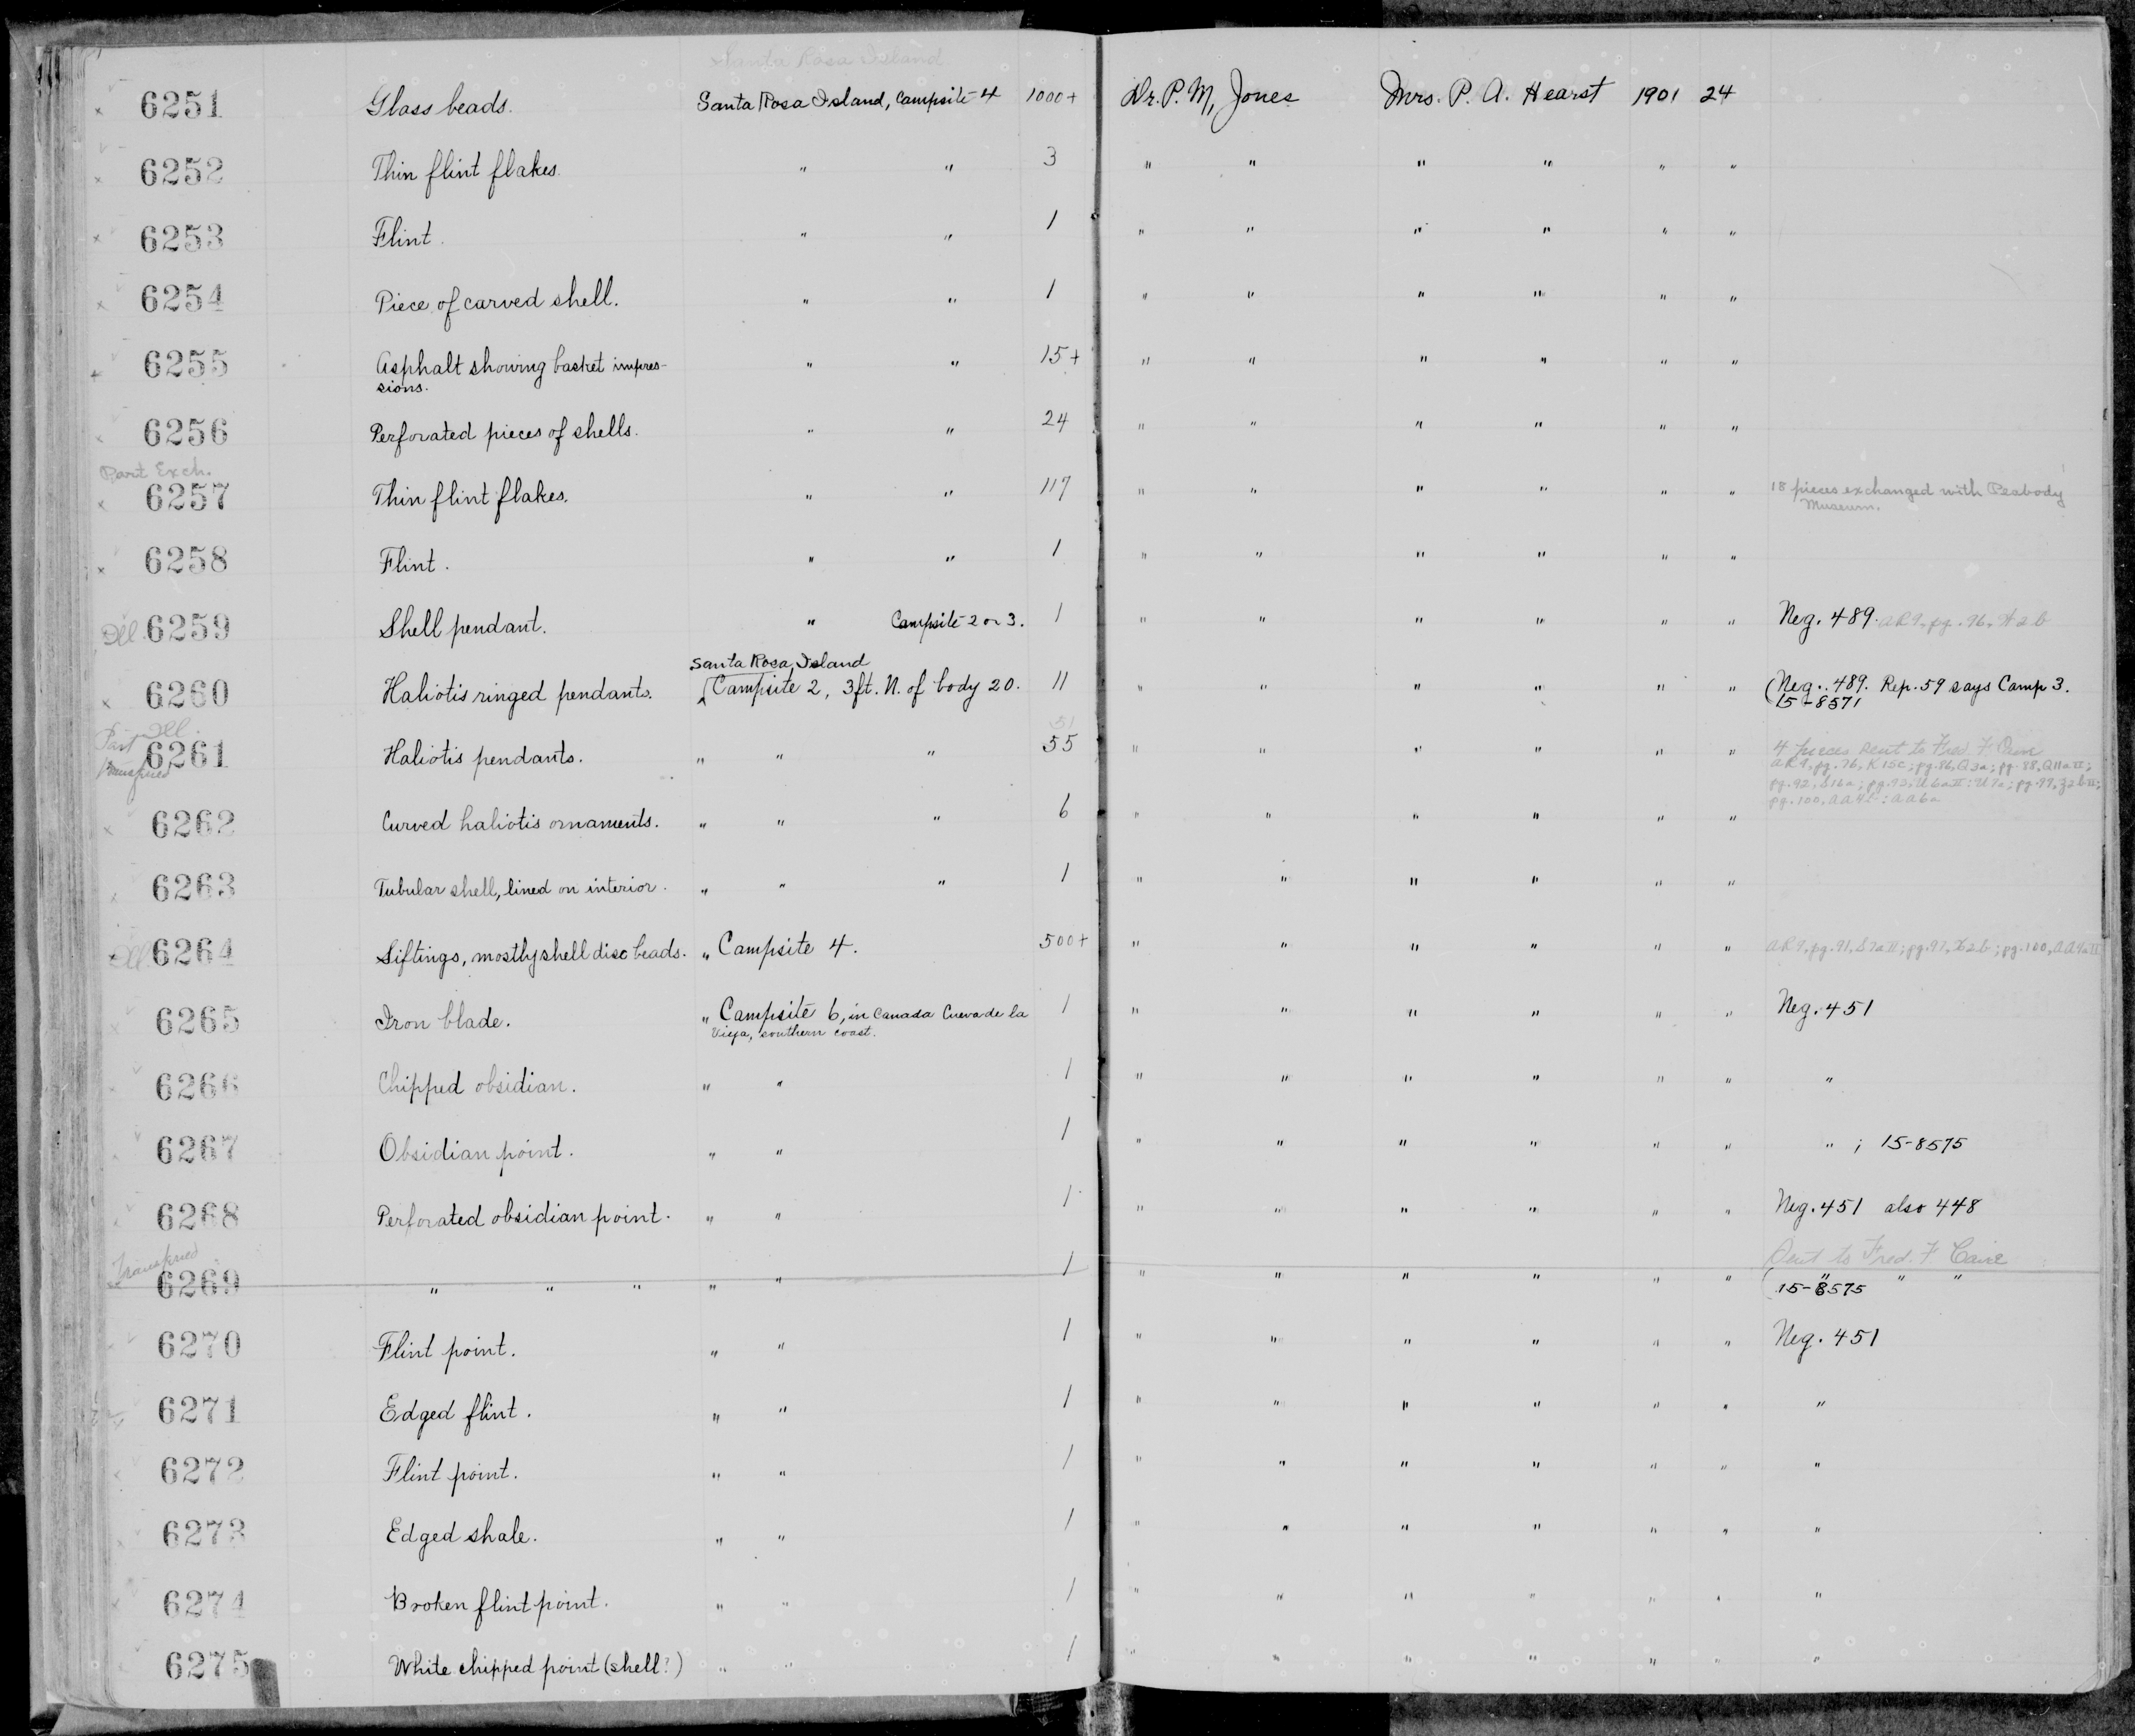 Santa Rosa Island
6251 Glass beads. Santa Rosa Island, Campsite 4 1000+ Dr. P. M. Jones Mrs. P. A. Hearst 1901 24
6252 Thin flint flakes. " " 3 " " " " " "
6253 Flint. " " 1 " " " " " "
6254 Piece of carved shell. " " 1 " " " " " "
6255 Asphalt showing basket impres- " " 15+ " " " " " "
sions.
6256 Perforated pieces of shells. " " 24 " " " " " "
Part Exch.
6257 Thin flint flakes. " " 117 " " " " " " 18 pieces exchanged with Peabody
Museum.
6258 Flint. " " 1 " " " " " "
Ill. 6259 Shell pendant. " Campsite 2 or 3. 1 " " " " " " Neg. 489. AR9, pg. 96,
Santa Rosa Island
6260 Haliotis ringed pendants. Campsite 2, 3ft. N. of body 20. 11 " " " " " " (Neg. 489. Rep. 59 says Camp 3.
15-8571
Part Ill. 51
6261 Haliotis pendants. " " " 55 " " " " " " 4 pieces sent to Fred. F.
AR9, pg. 76, K15c; pg. 86, Q3a; pg. 88, Q11aII;
pg. 92, S16a; pg. 93, U6aII; U7a; pg. 99,
pg. 100, AA4b; AA6a
6262 Curved haliotis ornaments. " " " 6 " " " " " "
6263 Tubular shell, lined on interior. " " " 1 " " " " " "
Ill. 6264 Siftings, mostly shell disc beads. " Campsite 4. 500+ " " " " " " AR9, pg. 91, S7aII; pg. 97, X2b; pg. 100,
6265 Iron blade. " Campsite 6, in Canada Cueva de la 1 " " " " " " Neg. 451
Vieja, southern coast.
6266 Chipped obsidian. " " 1 " " " " " " "
6267 Obsidian point. " " 1 " " " " " " " ; 15-8575
6268 Perforated obsidian point. " " 1 " " " " " " Neg. 451 also 448
Transferred Sent to Fred. F
6269 " " " " " 1 " " " " " " " " "
15-8575
6270 Flint point. " " 1 " " " " " " Neg. 451
6271 Edged flint. " " 1 " " " " " " "
6272 Flint point. " " 1 " " " " " " "
6273 Edged shale. " " 1 " " " " " " "
6274 Broken flint point. " " 1 " " " " " " "
6275 White chipped point (shell?) " " 1 " " " " " " "